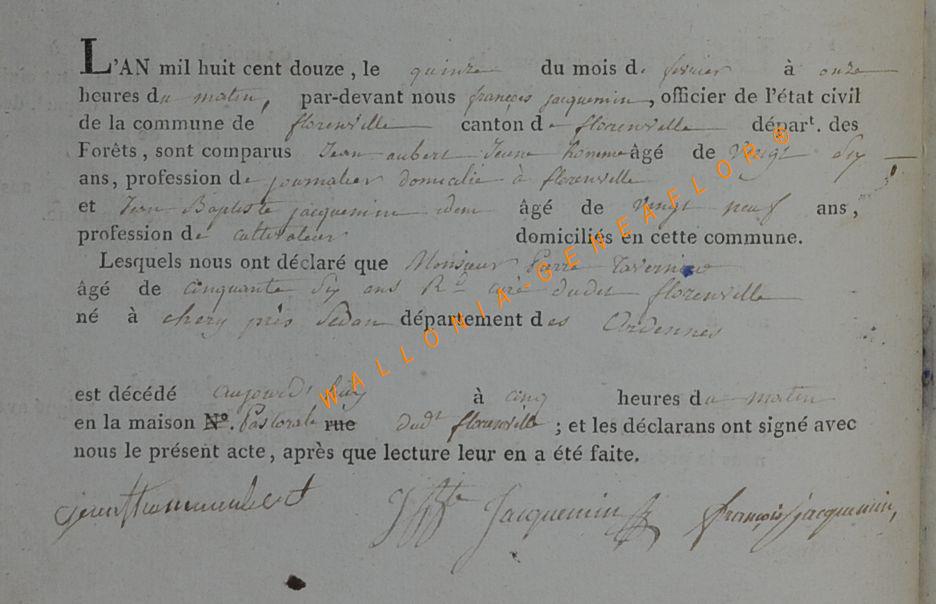 L'AN mil huit cent douze, le quinze du mois de fevrier à onze
heures du matin, par-devant nous françois jacquemin, officier de l'état civil
de la commune de florenville canton de florenville départ. des
Forêts, sont comparus Jean aubert Jeune homme âgé de Vingt Six
ans, profession de journalier domicilié à florenville
et Jean Baptiste jacquemin idem âgé de Vingt neuf ans,
profession de cultivateur domiciliés en cette commune.
Lesquels nous ont déclaré que Monsieur Pierre Tavernier
âgé de cinquante Six ans Rd curé dudet florenville
né à chery près Sedan département des Ardennes
est décédé aujourd'huy à cinq heures du matin
en la maison N°. Pastorale rue dudt florenville; et les déclarans ont signé avec
nous le présent acte, après que lecture leur en a été faite.
Jacquemin françois jacquemin,
WALLONIA-GENEAFLOR®